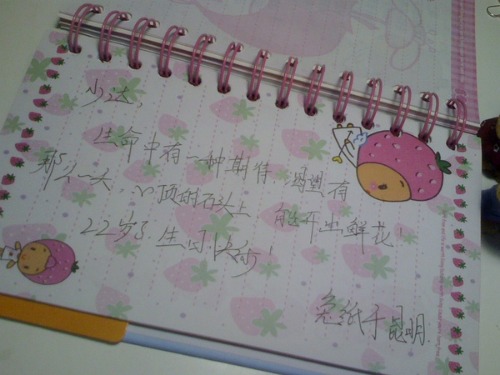 少达,
生命中有一种期待,渴望有
那么一天,心顶的石头上能开出鲜花!
22岁了生日快乐!
兔纸于昆明.